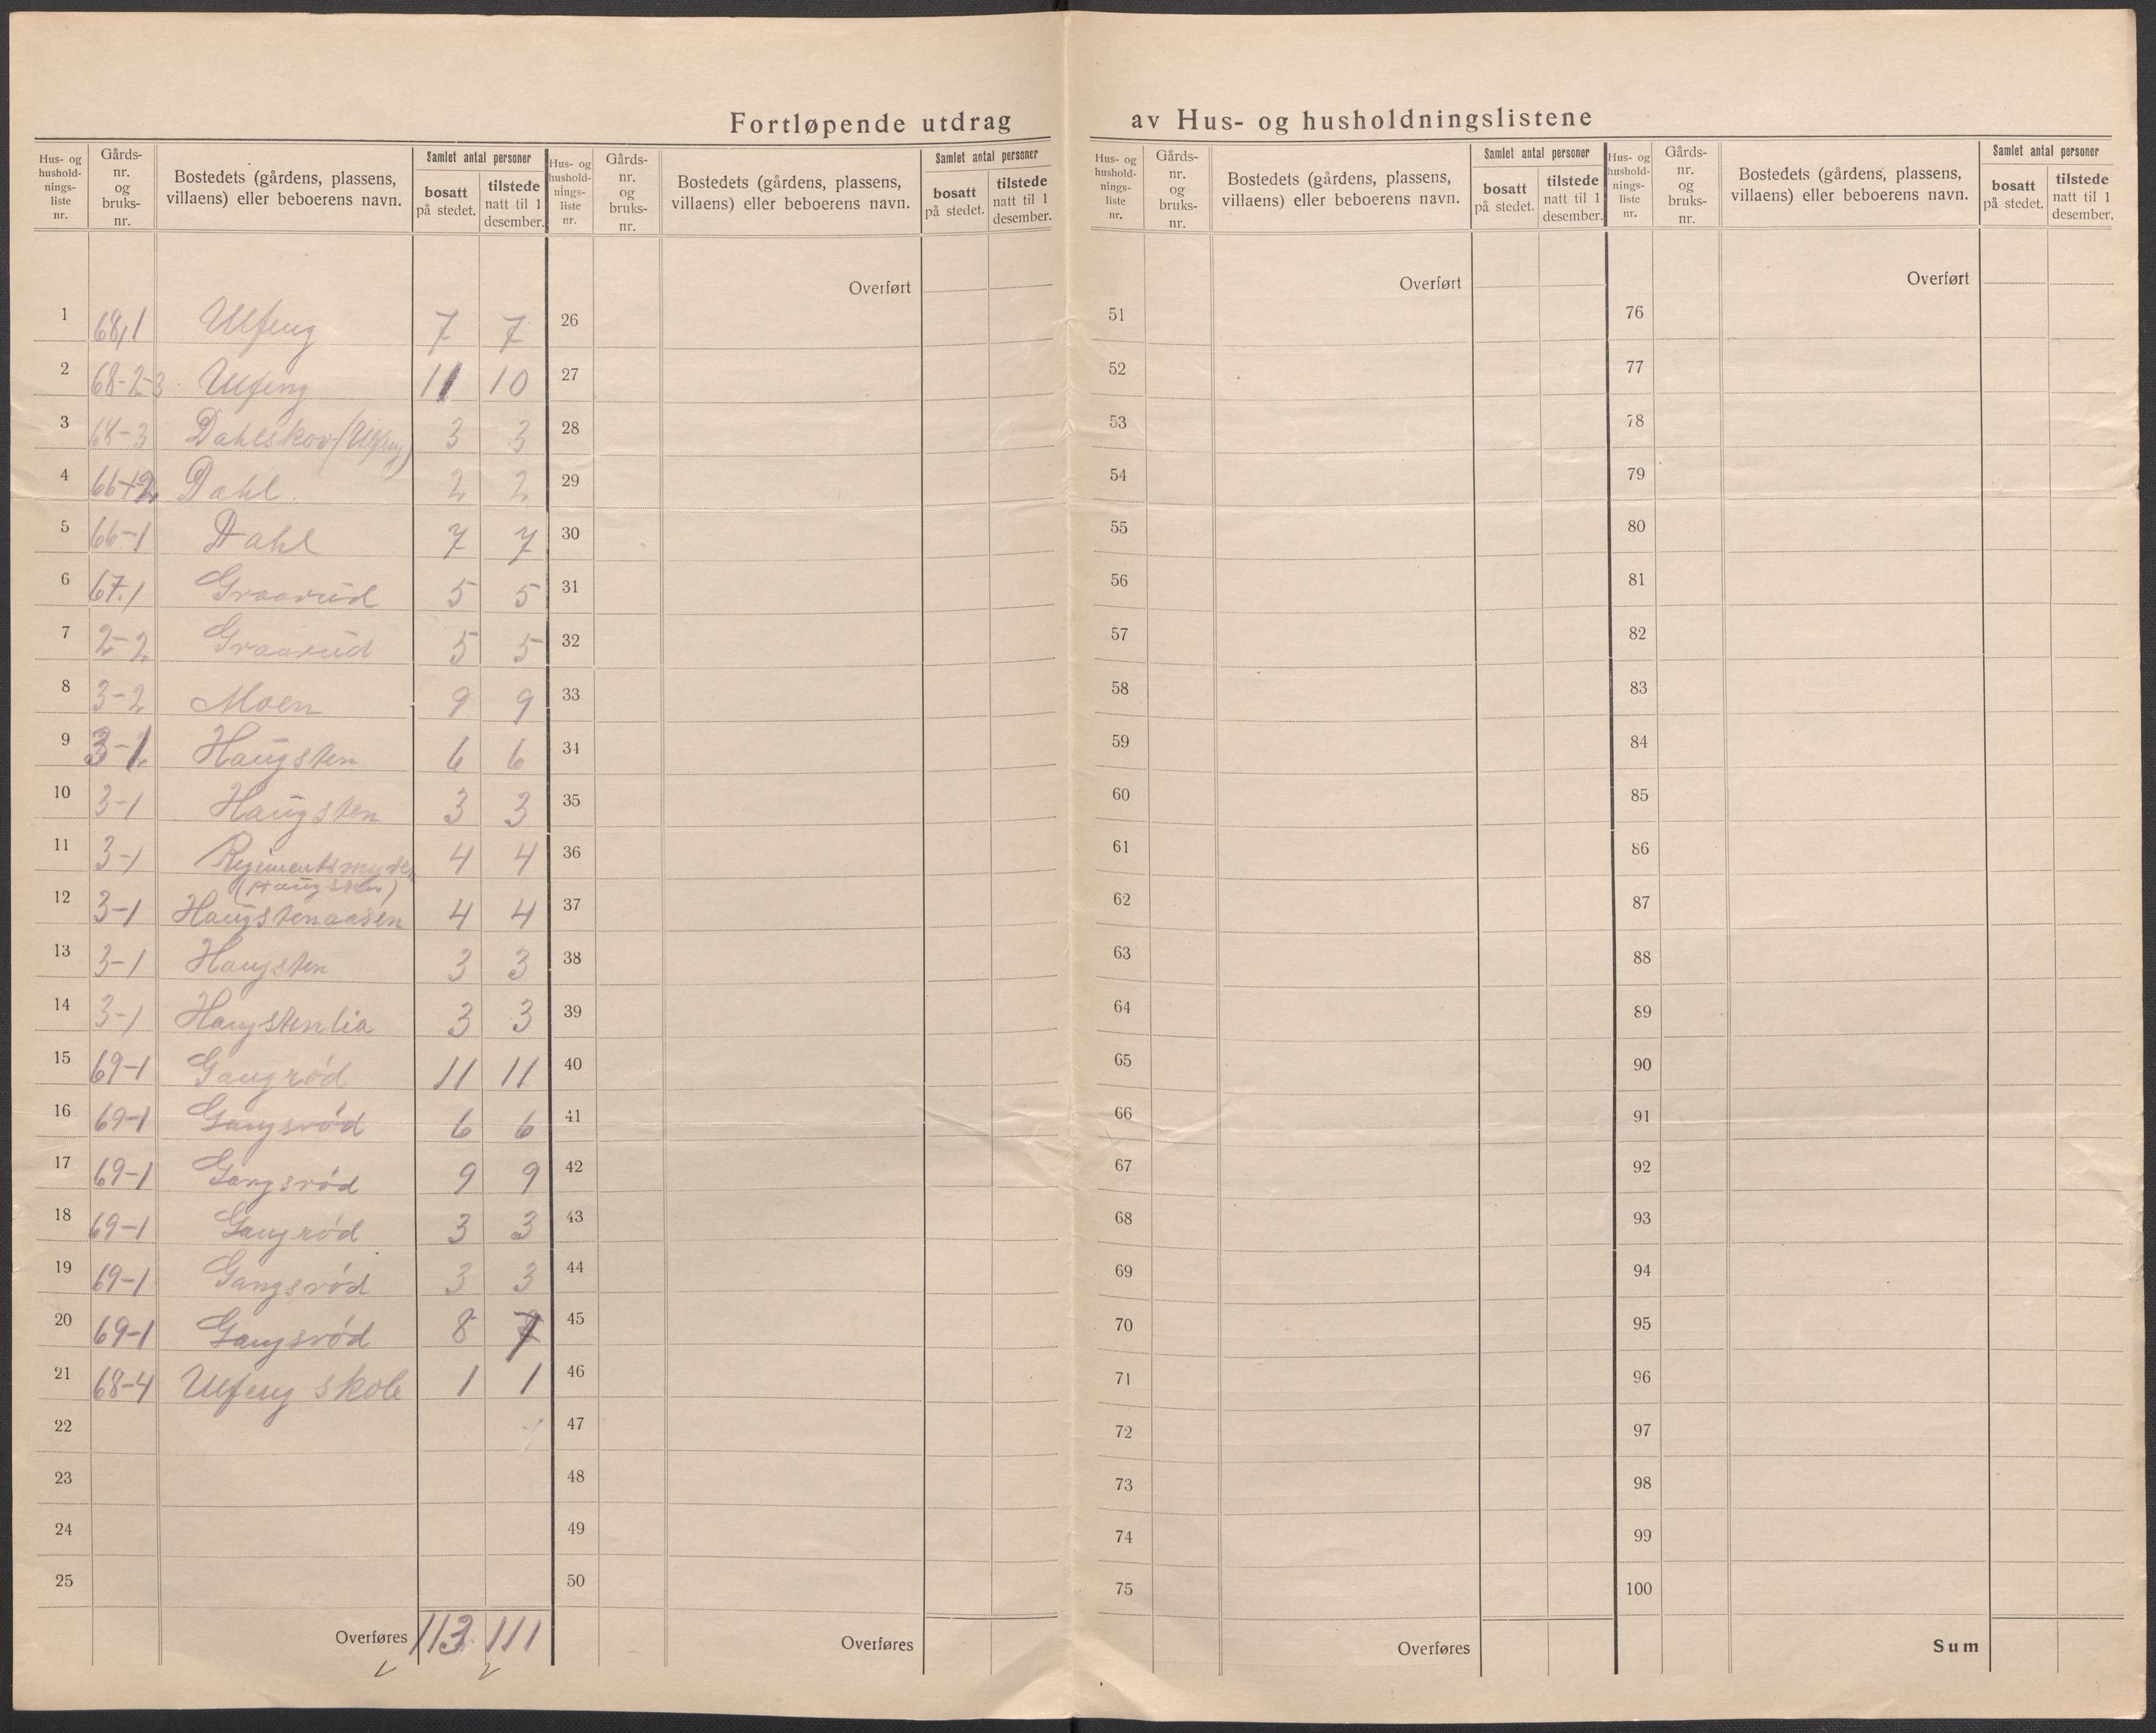 Fortløpende utdrag av Hus- og husholdningslistene
Hus- og hushold-nings-liste nr. | Gårds-nr. og bruks-nr. | Bostedets (gårdens, plassens, villaens) eller beboerens navn. | Samlet antal personer | bosatt på stedet. | tilstede natt til 1 desember.
Hus- og hushold-nings-liste nr. | Gårds-nr. og bruks-nr. | Bostedets (gårdens, plassens, villaens) eller beboerens navn. | Samlet antal personer | bosatt på stedet. | tilstede natt til 1 desember.
Hus- og hushold-nings-liste nr. | Gårds-nr. og bruks-nr. | Bostedets (gårdens, plassens, villaens) eller beboerens navn. | Samlet antal personer | bosatt på stedet. | tilstede natt til 1 desember.
Hus- og hushold-nings-liste nr. | Gårds-nr. og bruks-nr. | Bostedets (gårdens, plassens, villaens) eller beboerens navn. | Samlet antal personer | bosatt på stedet. | tilstede natt til 1 desember.
1 68,1 Ulfeng 7 7
2 68-2-3 Ulfeng 11 10
3 68-3 Dahlskov (Ulfeng) 3 3
4 Dahl. 2 2
5 66-1 Dahl 7 7
6 67.1 Graarud 5 5
7 2-2 Graarud 5 5
8 3-2 Moen 9 9
9 3-1 Haugsten 6 6
10 3-1 Haugsten 3 3
11 3-1 Regimentsmyren 4 4
(Haugsten)
12 3-1 Haugstenaasen 4 4
13 3-1 Haugsten 3 3
14 3-1 Haugstenlia 3 3
15 69-1 Gangrød 11 11
16 69-1 Gangsrød 6 6
17 69-1 Gangsrød 9 9
18 69-1 Gangrød 3 3
19 69-1 Gangsrød 3 3
20 69-1 Gangsrød 8 7
21 68-4 Ulfeng skole 1 1
22
23
24
25
Overføres 113 111
Overført
26
27
28
29
30
31
32
33
34
35
36
37
38
39
40
41
42
43
44
45
46
47
48
49
50
Overføres
Overført
51
52
53
54
55
56
57
58
59
60
61
62
63
64
65
66
67
68
69
70
71
72
73
74
75
Overføres
Overført
76
77
78
79
80
81
82
83
84
85
86
87
88
89
90
91
92
93
94
95
96
97
98
99
100
Sum